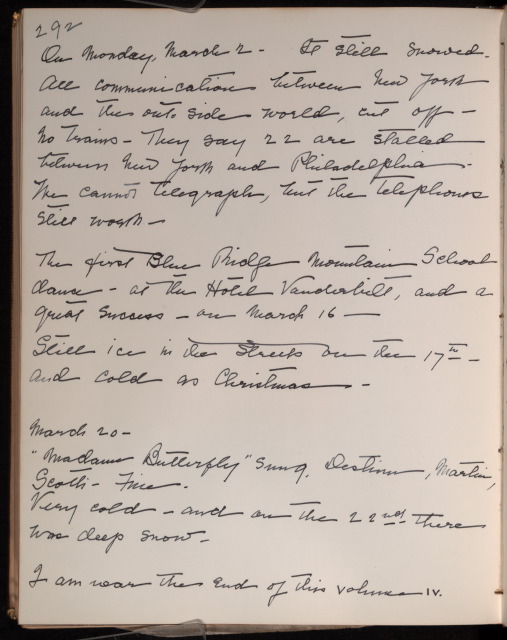 292
On Monday, March 2 - It still snowed.
All communications between New York
and the out-side world, cut off -
No trains - They say 22 are stalled
between New York and Philadelphia -
We cannot telegraph, but the telephones
still work -
The first Blue Ridge Mountain School
dance - at the Hotel Vanderbilt, and a
great success - on March 16 -
Still ice in the streets on the 17th -
and cold as Christmas -
March 20 -
"Madame Butterfly" Sung, Destinn, Martin,
Scotti - Fine.
Very cold - and on the 22nd there
was deep snow -
I am near the end of this volume IV.